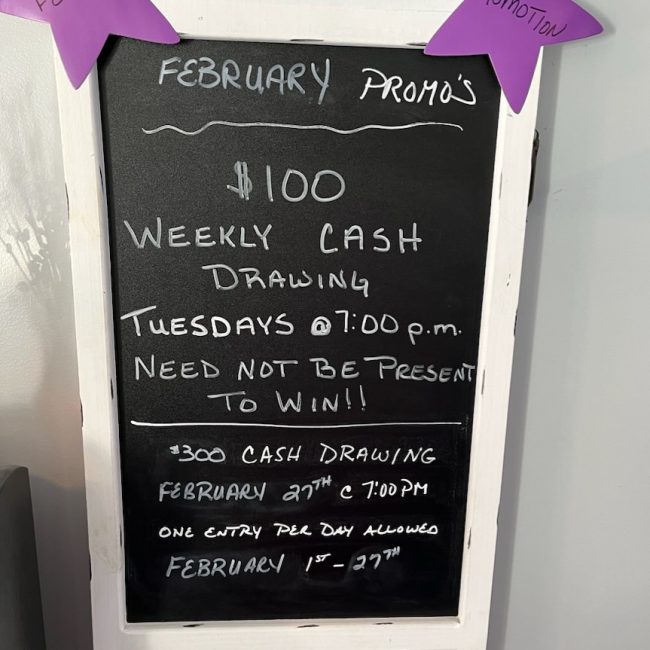 FEBRUARY PROMO'S
$100
WEEKLY CASH
DRAWING
TUESDAYS @ 7:00 p.m.
NEED NOT BE PRESENT
TO WIN!!
$300 CASH DRAWING
FEBRUARY 27TH @ 7:00PM
ONE ENTRY PER DAY ALLOWED
FEBRUARY 1ST - 27TH